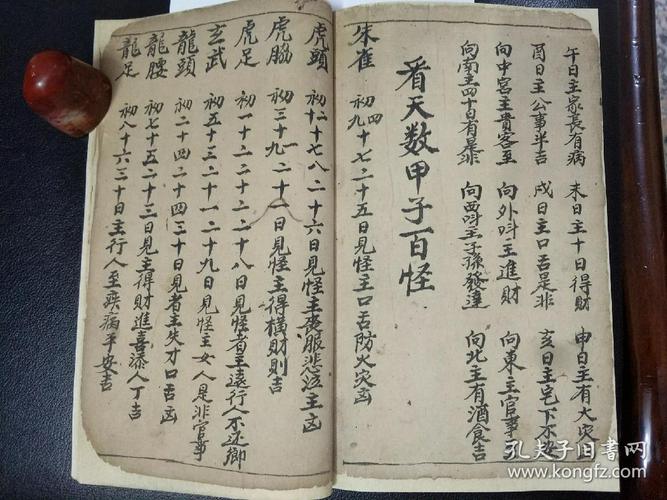 午日主家長有病 未日主十日得財 申日主有大災
酉日主公事半吉 戌日主口舌是非 亥日主宅下不安
向中宮主貴客至 向外呌主進財 向東主官事
向南主四十日有是非 向西呌主子孫發達 向北主有酒食吉
看天数甲子百怪
朱雀 初四 初九 十七 二十五日見怪主口舌防火災凶
虎頭 初 十七八二十六日見怪主喪服悲泣主凶
虎脇 初三十九 二十 日見怪主得横財則吉
虎足 初一十二二十二十八日見怪者主遠行人不还鄉
玄武 初五十三二十一二十九日見怪主女人是非官事
龍頭 初二十四二十四三十日見者主失才口舌凶
龍腰 初七十五二十三日見主得財進喜添人丁吉
龍足 初八十六三十日主行人至疾病平安吉
孔夫子旧書网
www.kongfz.com